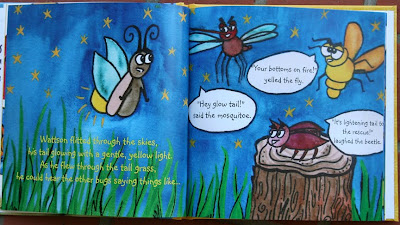 Wattson flitted through the skies,
his tail glowing with a gentle, yellow light.
As he flew through the tall grass,
he could hear the other bugs saying things like...
"Your bottoms on fire!"
yelled the fly.
"Hey glow tail!"
said the mosquitoe.
"It's lightening tail to
the rescue!"
laughed the beetle.